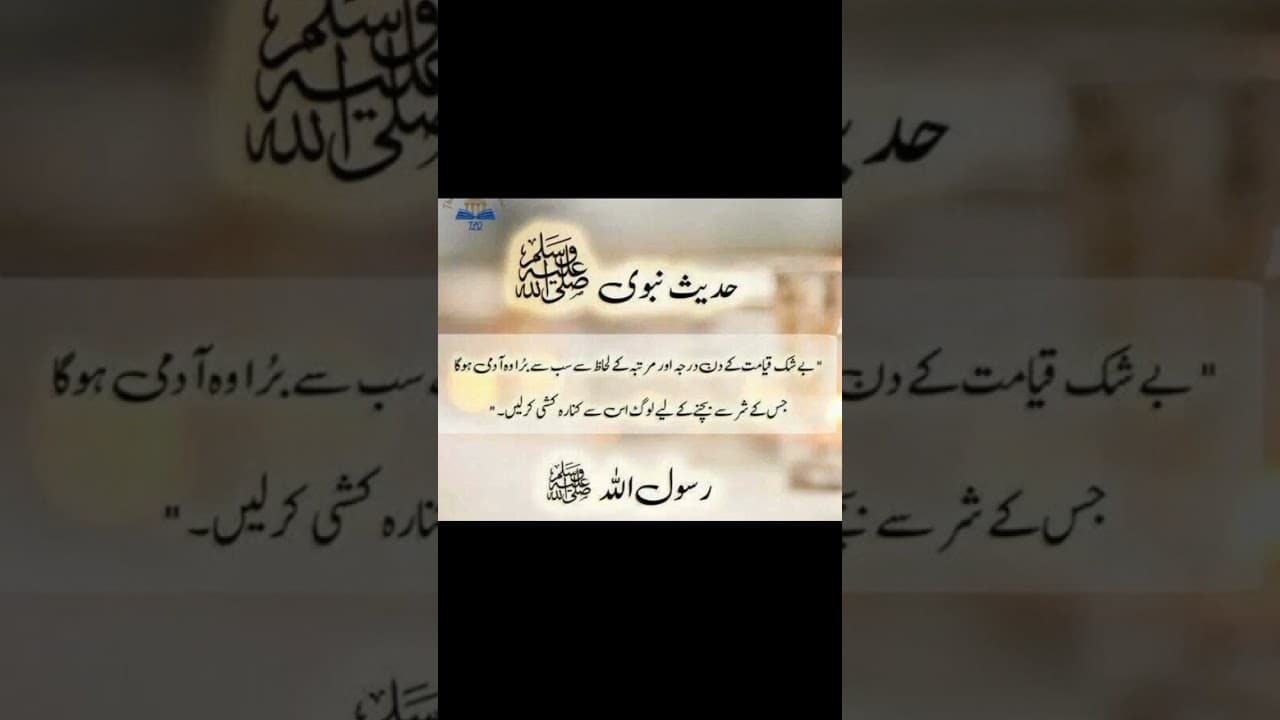 حدیث نبوی ﷺ
"بے شک قیامت کے دن درجہ اور مرتبہ کے لحاظ سے سب سے بُرا وہ آدمی ہوگا
جس کے شر سے بچنے کے لیے لوگ اس سے کنارہ کشی کرلیں۔"
رسول اللہ ﷺ